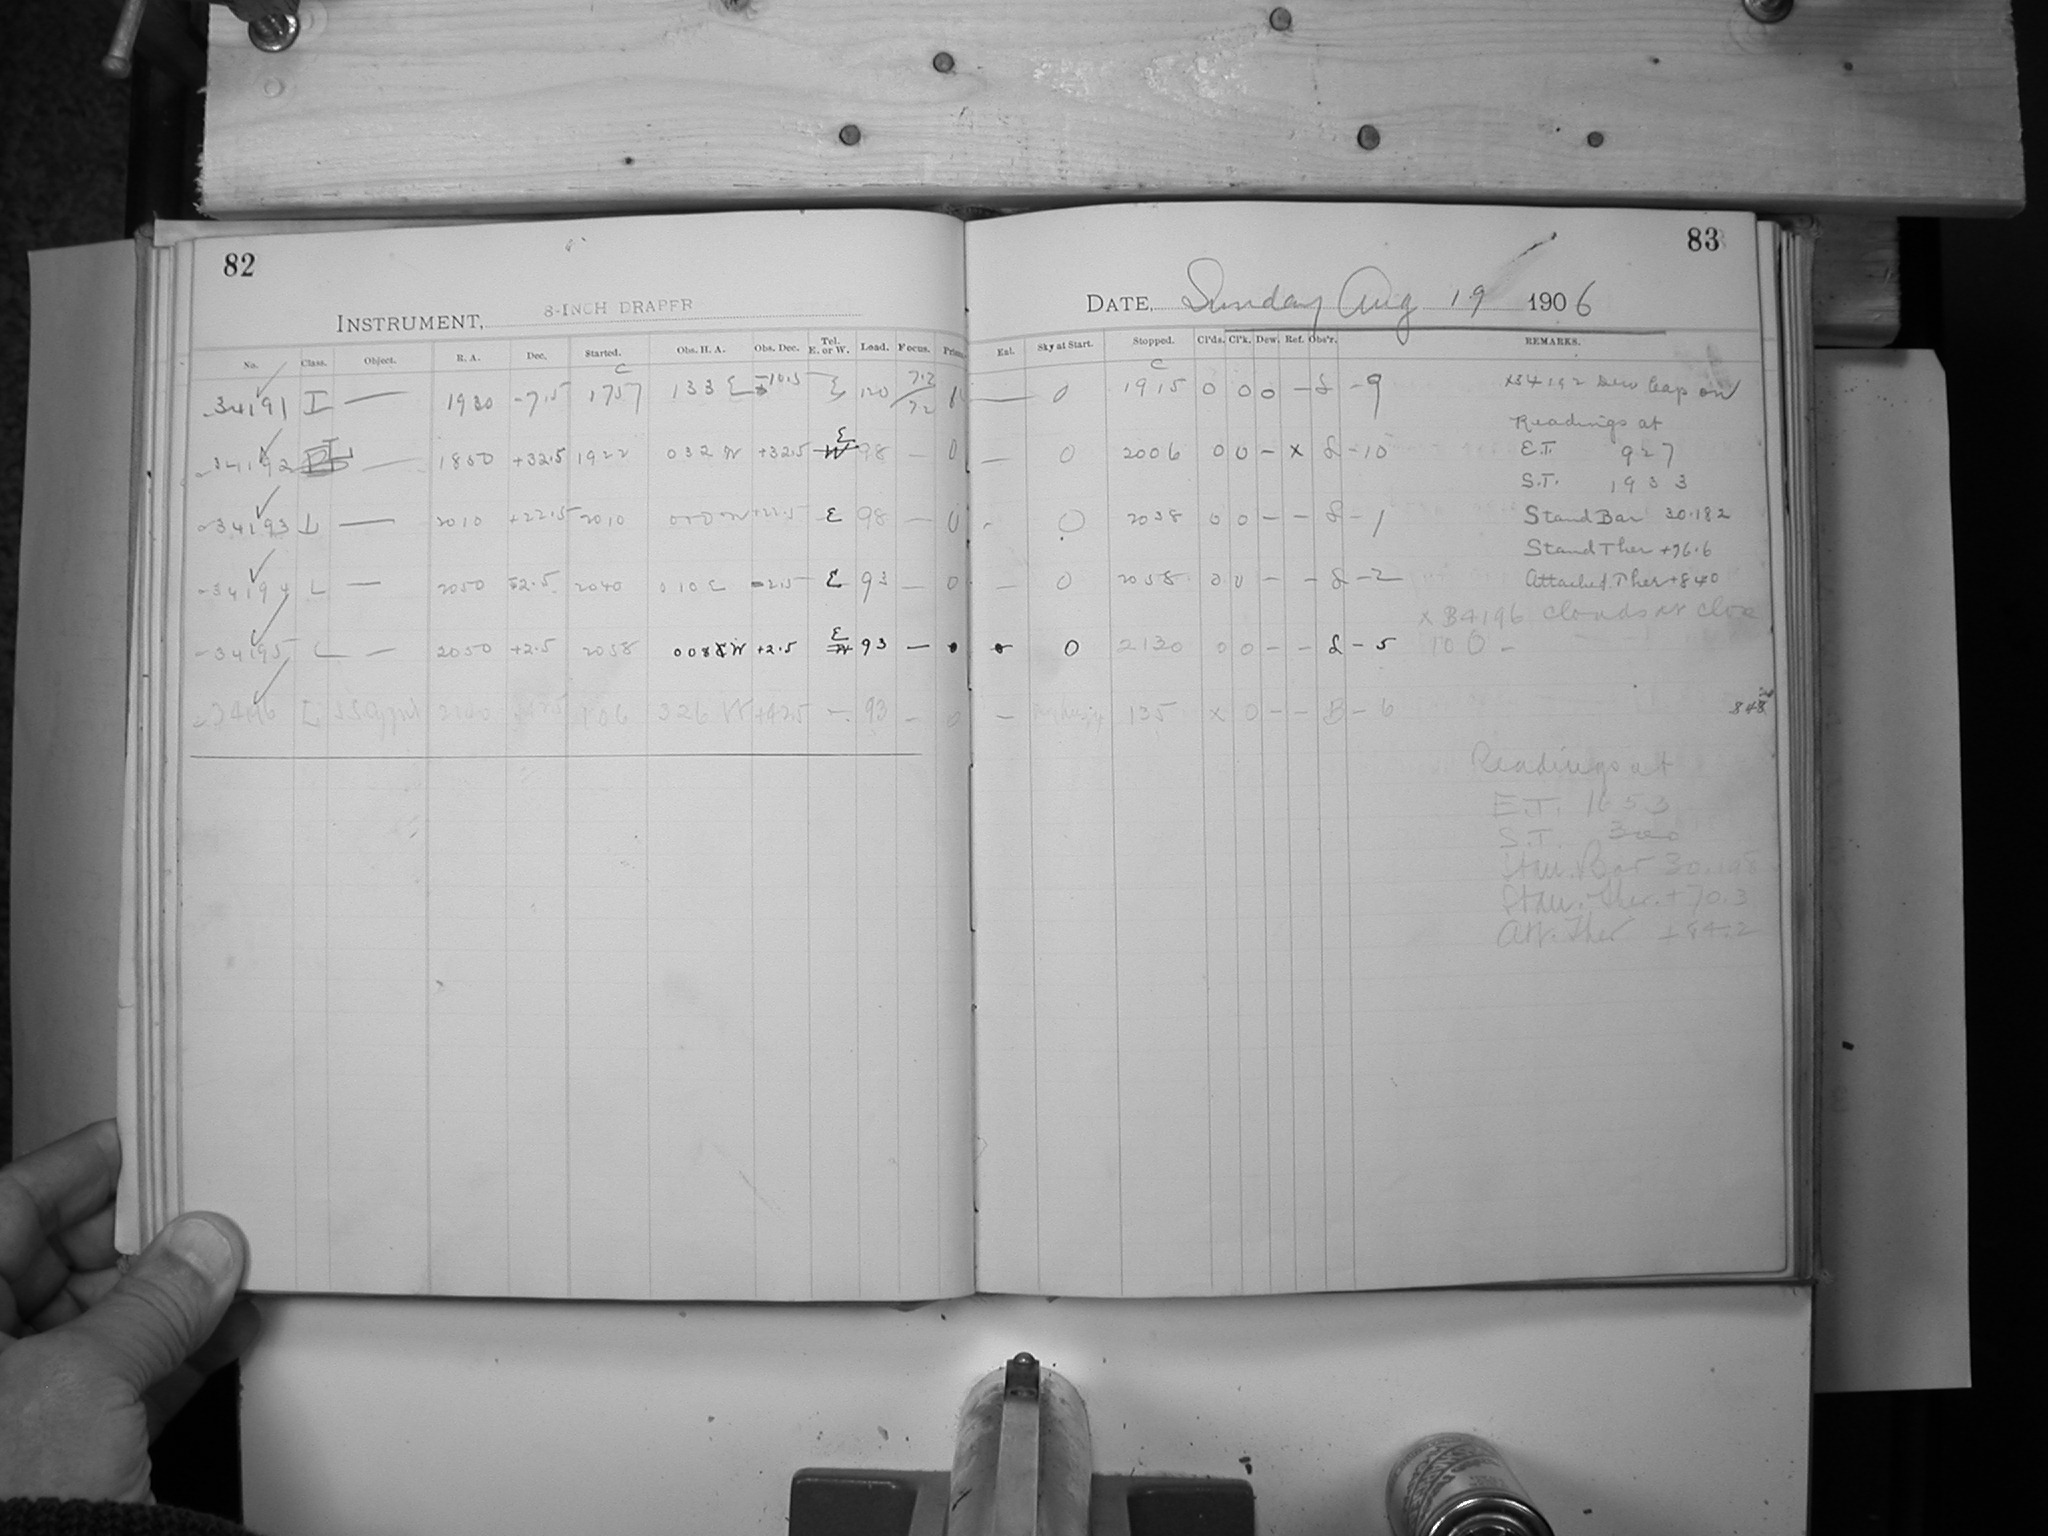 82
INSTRUMENT, 8-INCH DRAPER
No. Class. Object. R. A. Dec. Started. Obs. H. A. Obs. Dec. Tel. E. or W. Load. Focus.
34191 I — 1930 -7.5 1757 133 E -10.5 E 120 7.2/72
34192 — 1850 +32.5 1922 032 W +32.5 E 98 — 0
34193 L — 2010 +22.5 2010 000 W +22.5 E 98 — 0
34194 L — 2050 -2.5 2040 010 E -2.5 E 93 — 0
34195 L — 2050 +2.5 2058 008 W +2.5 E 93 —
34196 L 106 326 W +42.5 — 93 — 0
83
DATE, Sunday Aug 19 1906
Exl. Sky at Start. Stopped. Cl'ds. Cl'k. Dew. Ref. Obs'r. REMARKS.
— 0 1915 0 0 0 — L — 9 x34192 Dew Cap on
Readings at
— 0 2006 0 0 — x L — 10 E.T. 927
S.T. 1933
0 2038 0 0 — — L — 1 Stand Bar 30.182
Stand Ther +76.6
— 0 2058 0 0 — — L — 2 Attached Ther +840
x 34196 clouds at close
0 2130 0 0 — — L — 5 10 0 —
— 135 x 0 — — B — 6
848
Readings at
E.T. 1653
S.T. 300
Stan. Bar 30.198
Stan. Ther. +70.3
Att. Ther +84.2